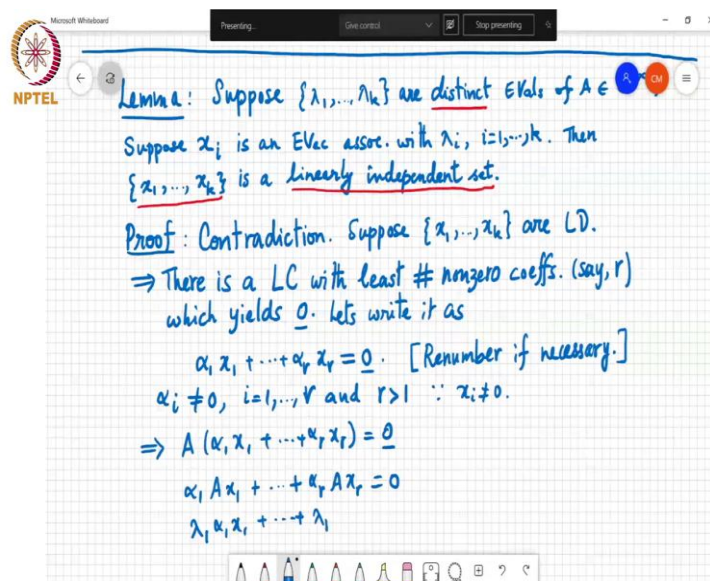 Microsoft Whiteboard
Presenting... Give control Stop presenting
NPTEL
CM
Lemma: Suppose {λ₁,..., λₖ} are distinct EVals of A ∈
Suppose xᵢ is an EVec assoc. with λᵢ, i=1,..,k. Then
{x₁,..., xₖ} is a linearly independent set.
Proof: Contradiction. Suppose {x₁,..., xₖ} are LD.
⇒ There is a LC with least # nonzero coeffs. (say, r)
which yields 0. Lets write it as
α₁ x₁ + ··· + αᵣ xᵣ = 0. [Renumber if necessary.]
αᵢ ≠ 0, i=1,.., r and r>1 ∵ xᵢ ≠ 0.
⇒ A (α₁ x₁ + ··· + αᵣ xᵣ) = 0
α₁ A x₁ + ··· + αᵣ A xᵣ = 0
λ₁ α₁ x₁ + ··· + λ₁